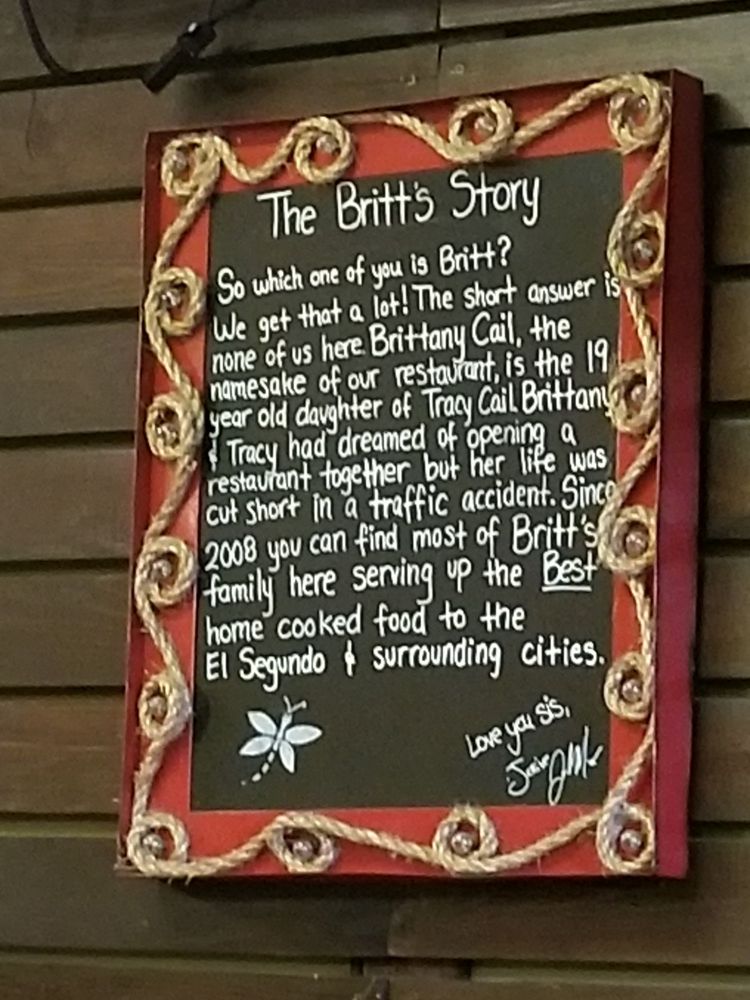 The Britt's Story
So which one of you is Britt?
We get that a lot! The short answer is
none of us here. Brittany Cail, the
namesake of our restaurant, is the 19
year old daughter of Tracy Cail. Brittany
& Tracy had dreamed of opening a
restaurant together but her life was
cut short in a traffic accident. Since
2008 you can find most of Britt's
family here serving up the Best
home cooked food to the
El Segundo & surrounding cities.
Love you sis,